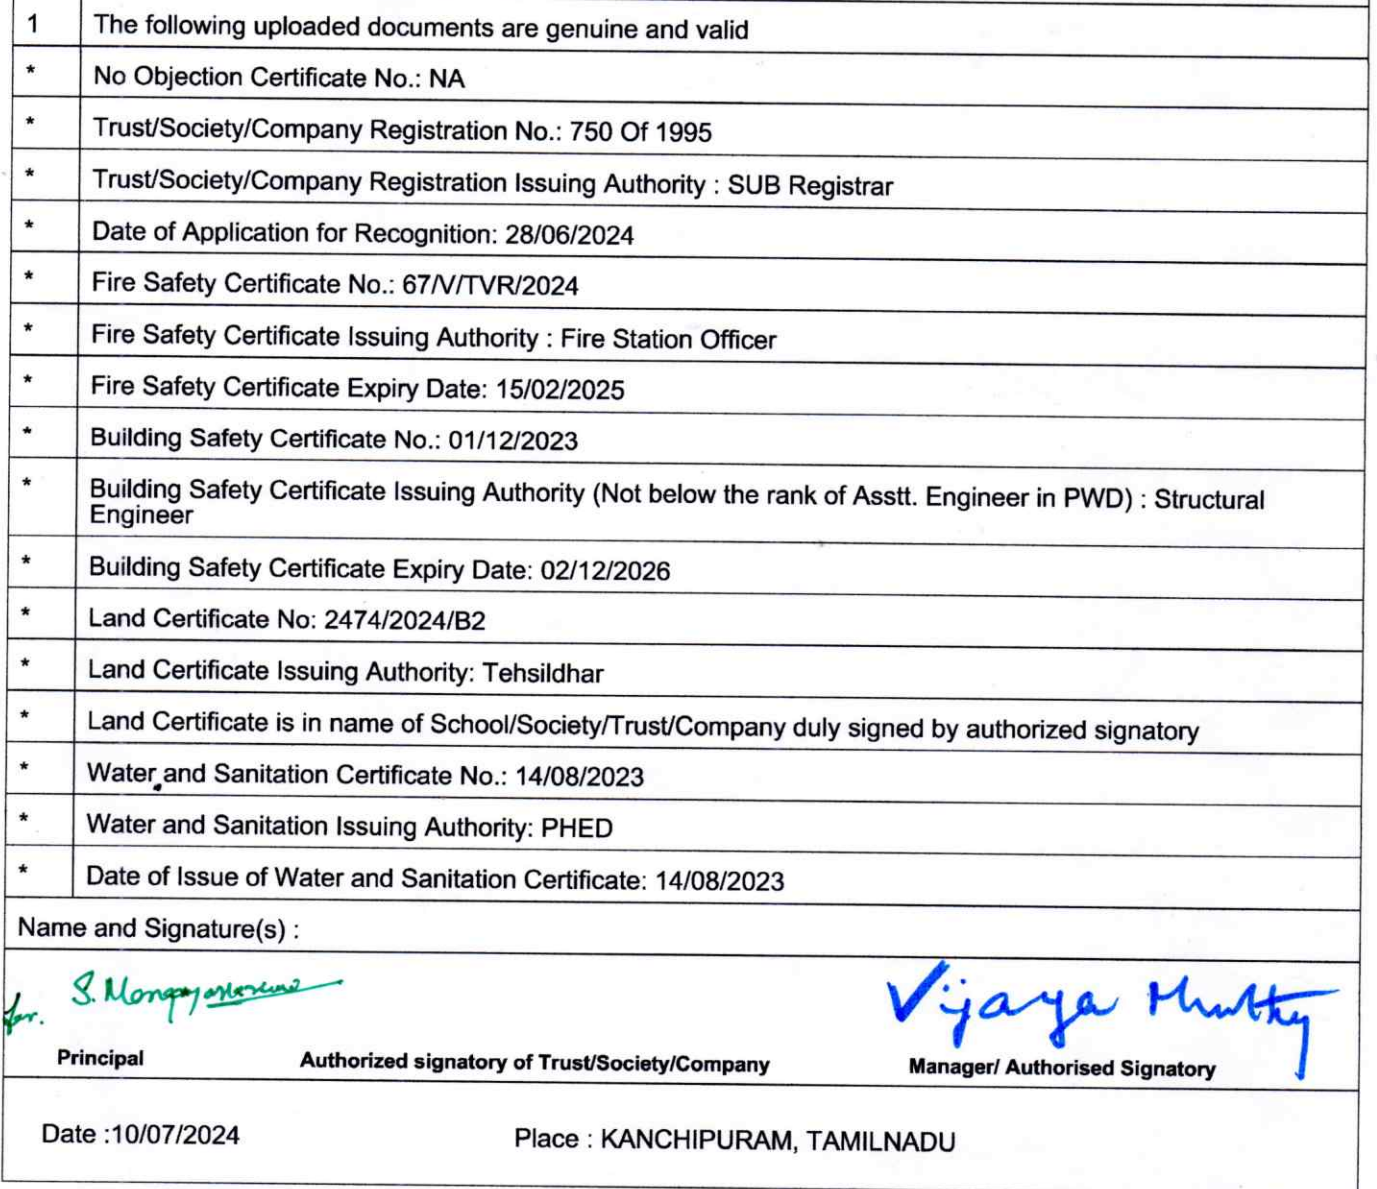 1 The following uploaded documents are genuine and valid
* No Objection Certificate No.: NA
* Trust/Society/Company Registration No.: 750 Of 1995
* Trust/Society/Company Registration Issuing Authority : SUB Registrar
* Date of Application for Recognition: 28/06/2024
* Fire Safety Certificate No.: 67/V/TVR/2024
* Fire Safety Certificate Issuing Authority : Fire Station Officer
* Fire Safety Certificate Expiry Date: 15/02/2025
* Building Safety Certificate No.: 01/12/2023
* Building Safety Certificate Issuing Authority (Not below the rank of Asstt. Engineer in PWD) : Structural
Engineer
* Building Safety Certificate Expiry Date: 02/12/2026
* Land Certificate No: 2474/2024/B2
* Land Certificate Issuing Authority: Tehsildhar
* Land Certificate is in name of School/Society/Trust/Company duly signed by authorized signatory
* Water and Sanitation Certificate No.: 14/08/2023
* Water and Sanitation Issuing Authority: PHED
* Date of Issue of Water and Sanitation Certificate: 14/08/2023
Name and Signature(s) :
for. S. Vijaya Muthy
Principal Authorized signatory of Trust/Society/Company Manager/ Authorised Signatory
Date :10/07/2024 Place : KANCHIPURAM, TAMILNADU